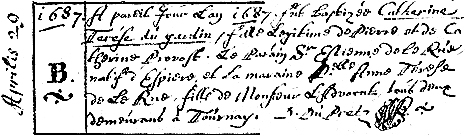 Aprilis 29
1687.
B.
A pareil Jour L'an 1687. fut Baptisée Catherine
Terese du jardin, fille Legitime de Pierre et de Ca
therine Prevost. Le Parain Sr Etienne de le Rue
natif d'Espiere, et La maraine Delle Anne Terese
de Le Rue, fille de Monsieur L'Advocat, tout deux
demeurans à Tournay. Du Pret